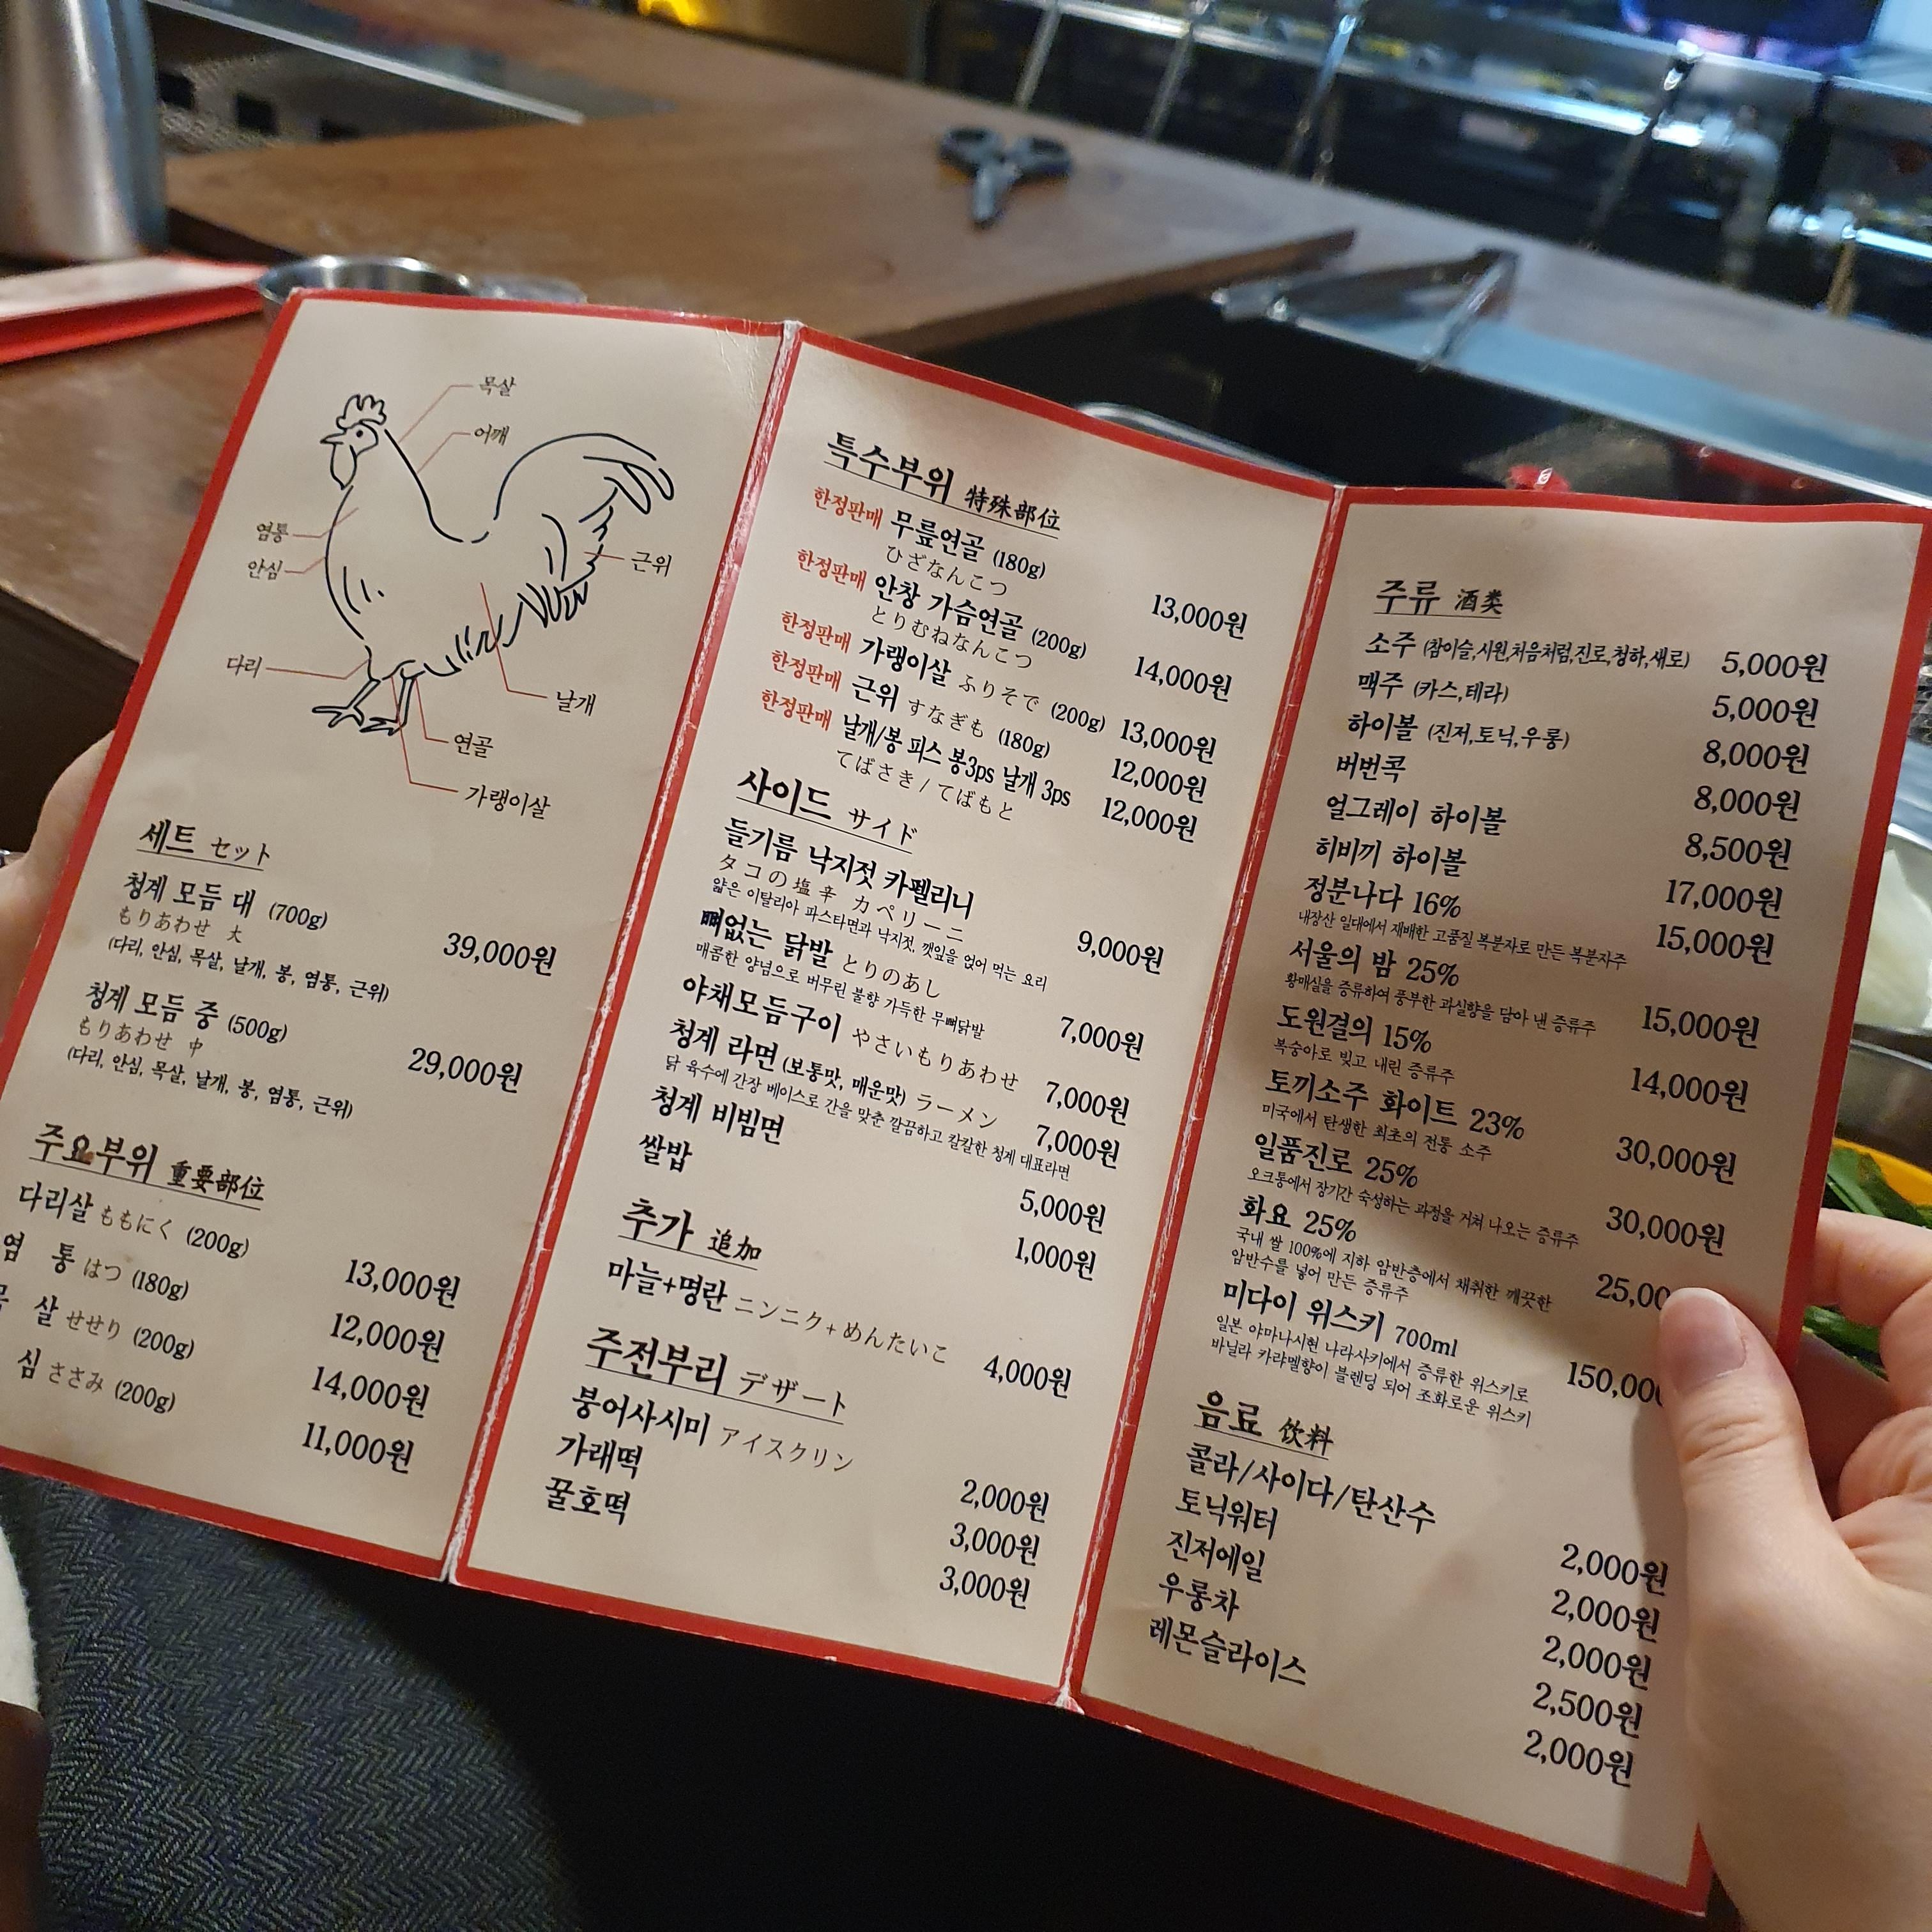 목살
어깨
염통
안심
근위
다리
날개
연골
가랭이살
세트 セット
청계 모듬 대 (700g)
もりあわせ 大
39,000원
(다리, 안심, 목살, 날개, 봉, 염통, 근위)
청계 모듬 중 (500g)
もりあわせ 中
29,000원
(다리, 안심, 목살, 날개, 봉, 염통, 근위)
주요부위 重要部位
다리살 ももにく (200g) 13,000원
염 통 はつ (180g) 12,000원
살 せせり (200g) 14,000원
심 ささみ (200g) 11,000원
특수부위 特殊部位
한정판매 무릎연골 (180g) 13,000원
ひざなんこつ
한정판매 안창 가슴연골 (200g) 14,000원
とりむねなんこつ
한정판매 가랭이살 ふりそで (200g) 13,000원
한정판매 근위 すなぎも (180g) 12,000원
한정판매 날개/봉 피스 봉3ps 날개 3ps 12,000원
てばさき / てばもと
사이드 サイド
들기름 낙지젓 카펠리니 9,000원
タコの塩辛 カペリーニ
얇은 이탈리아 파스타면과 낙지젓, 깻잎을 얹어 먹는 요리
뼈없는 닭발 とりのあし 7,000원
매콤한 양념으로 버무린 불향 가득한 무뼈닭발
야채모듬구이 やさいもりあわせ 7,000원
청계 라면 (보통맛, 매운맛) ラーメン 7,000원
닭 육수에 간장 베이스로 간을 맞춘 깔끔하고 칼칼한 청계 대표라면
청계 비빔면 5,000원
쌀밥 1,000원
추가 追加
마늘+명란 ニンニク+めんたいこ 4,000원
주전부리 デザート
붕어사시미 アイスクリン 2,000원
가래떡 3,000원
꿀호떡 3,000원
주류 酒类
소주 (참이슬,시원,처음처럼,진로,청하,새로) 5,000원
맥주 (카스,테라) 5,000원
하이볼 (진저,토닉,우롱) 8,000원
버번콕 8,000원
얼그레이 하이볼 8,500원
히비끼 하이볼 17,000원
정분나다 16% 15,000원
내장산 일대에서 재배한 고품질 복분자로 만든 복분자주
서울의 밤 25% 15,000원
황매실을 증류하여 풍부한 과실향을 담아 낸 증류주
도원결의 15% 14,000원
복숭아로 빚고 내린 증류주
토끼소주 화이트 23% 30,000원
미국에서 탄생한 최초의 전통 소주
일품진로 25% 30,000원
오크통에서 장기간 숙성하는 과정을 거쳐 나오는 증류주
화요 25% 25,00
국내 쌀 100%에 지하 암반층에서 채취한 깨끗한
암반수를 넣어 만든 증류주
미다이 위스키 700ml 150,000
일본 야마나시현 나라사키에서 증류한 위스키로
바닐라 카라멜향이 블렌딩 되어 조화로운 위스키
음료 饮料
콜라/사이다/탄산수 2,000원
토닉워터 2,000원
진저에일 2,000원
우롱차 2,500원
레몬슬라이스 2,000원